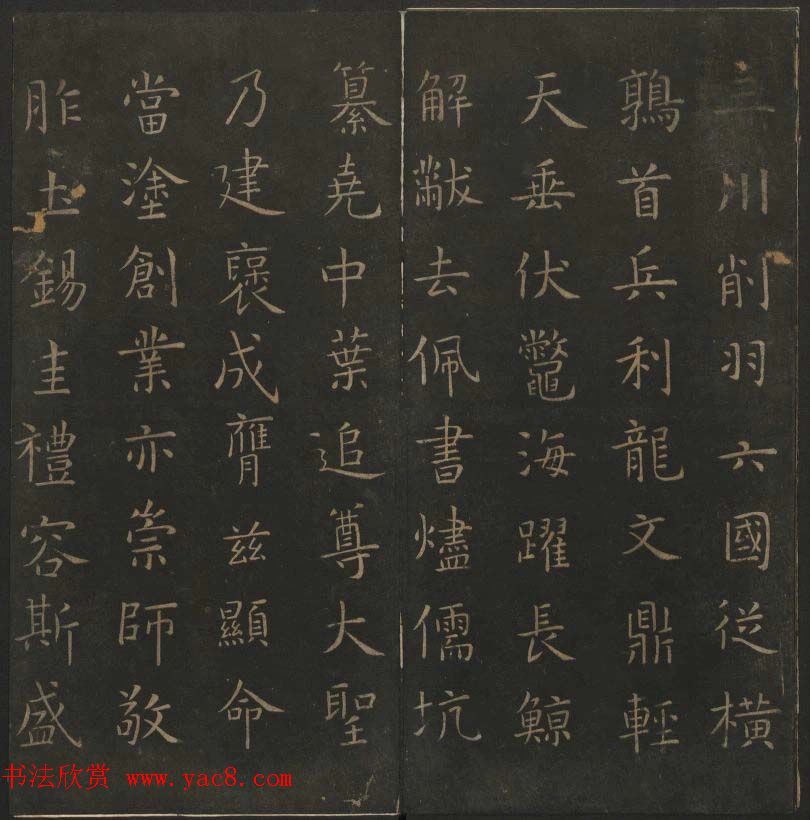 三川削羽六國從橫
鶉首兵利龍文鼎輕
天垂伏鼈海躍長鯨
解黻去佩書燼儒坑
纂堯中葉追尊大聖
乃建褒成膺茲顯命
當塗創業亦崇師敬
胙土錫圭禮容斯盛
书法欣赏 www.yac8.com